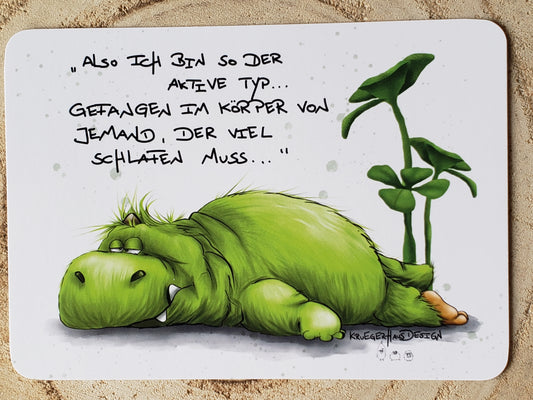 „Also ich bin so der
aktive Typ...
Gefangen im Körper von
jemand, der viel
schlafen muss..."
KruegerHausDesign